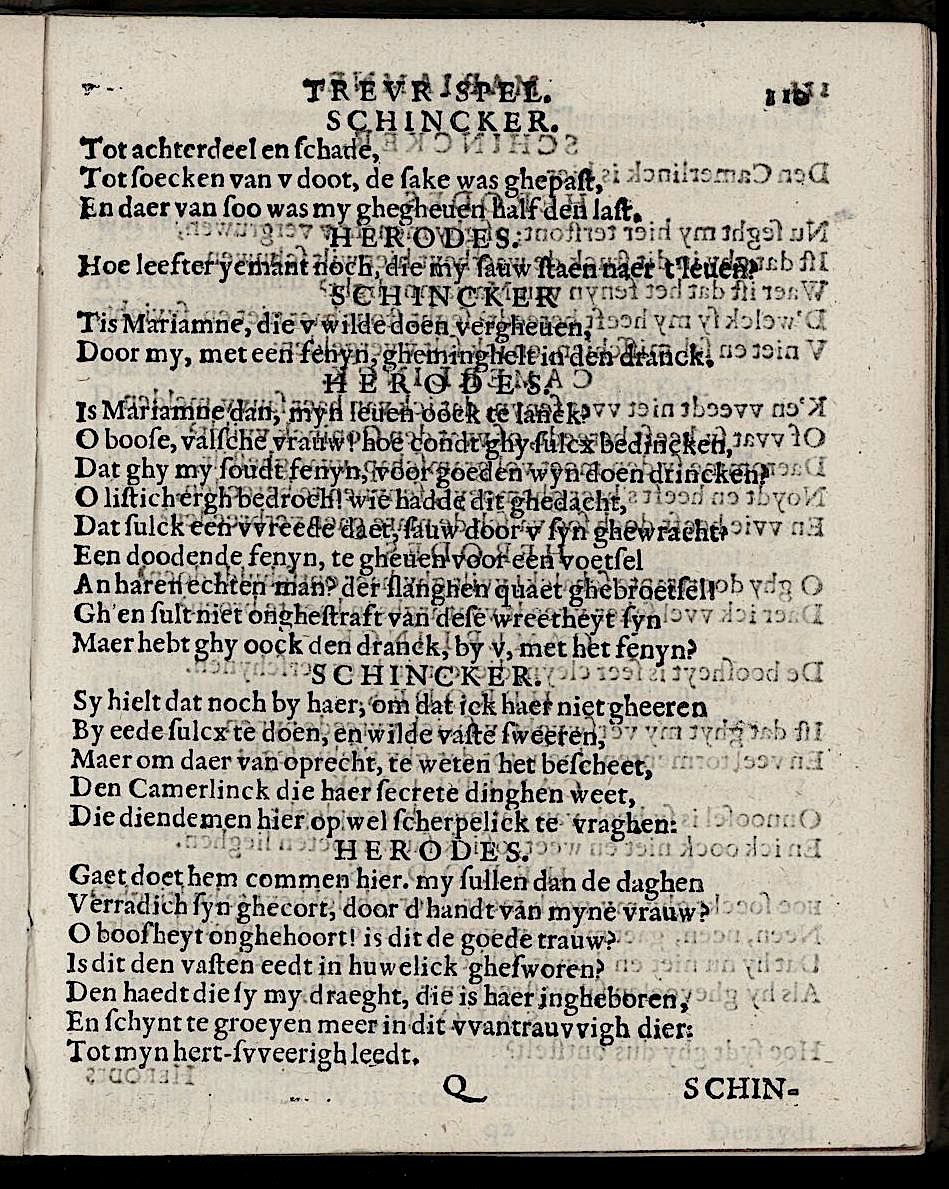 TREVR SPEL.
SCHINCKER.
Tot achterdeel en ſchade,
Tot ſoecken van v doot, de ſake was ghepaſt,
En daer van ſoo was my ghegheuen half den laſt.
HERODES.
Hoe leefter yemant noch, die my ſauw ſtaen naer t'leuen?
SCHINCKER
Tis Mariamne, die v wilde doen vergheuen,
Door my, met een fenyn, gheminghelt in den dranck.
HERODES.
Is Mariamne dan, myn leuen oock te lanck?
O booſe, valſche vrauw! hoe condt ghy ſulcx bedincken,
Dat ghy my ſoudt fenyn, voor goeden wyn doen drincken?
O liſtich ergh bedroch! wie hadde dit ghedacht,
Dat ſulck een vvreede daet, ſauw door v ſyn ghewracht?
Een doodende fenyn, te gheuen voor een voetſel
An haren echten man? der ſlanghen quaet ghebroetſel!
Gh'en ſult niet ongheſtraft van deſe wreetheyt ſyn
Maer hebt ghy oock den dranck, by v, met het fenyn?
SCHINCKER.
Sy hielt dat noch by haer, om dat ick haer niet gheeren
By eede ſulcx te doen, en wilde vaſte ſweeren,
Maer om daer van oprecht, te weten het beſcheet,
Den Camerlinck die haer ſecrete dinghen weet,
Die diende men hier op wel ſcherpelick te vraghen:
HERODES.
Gaet doet hem commen hier. my ſullen dan de daghen
Verradich ſyn ghecort, door d'handt van myne vrauw?
O booſheyt onghehoort! is dit de goede trauw?
Is dit den vaſten eedt in huwelick gheſworen?
Den haedt die ſy my draeght, die is haer ingheboren,
En ſchynt te groeyen meer in dit vvantrauvvigh dier:
Tot myn hert-ſvveerigh leedt.
Q SCHIN-